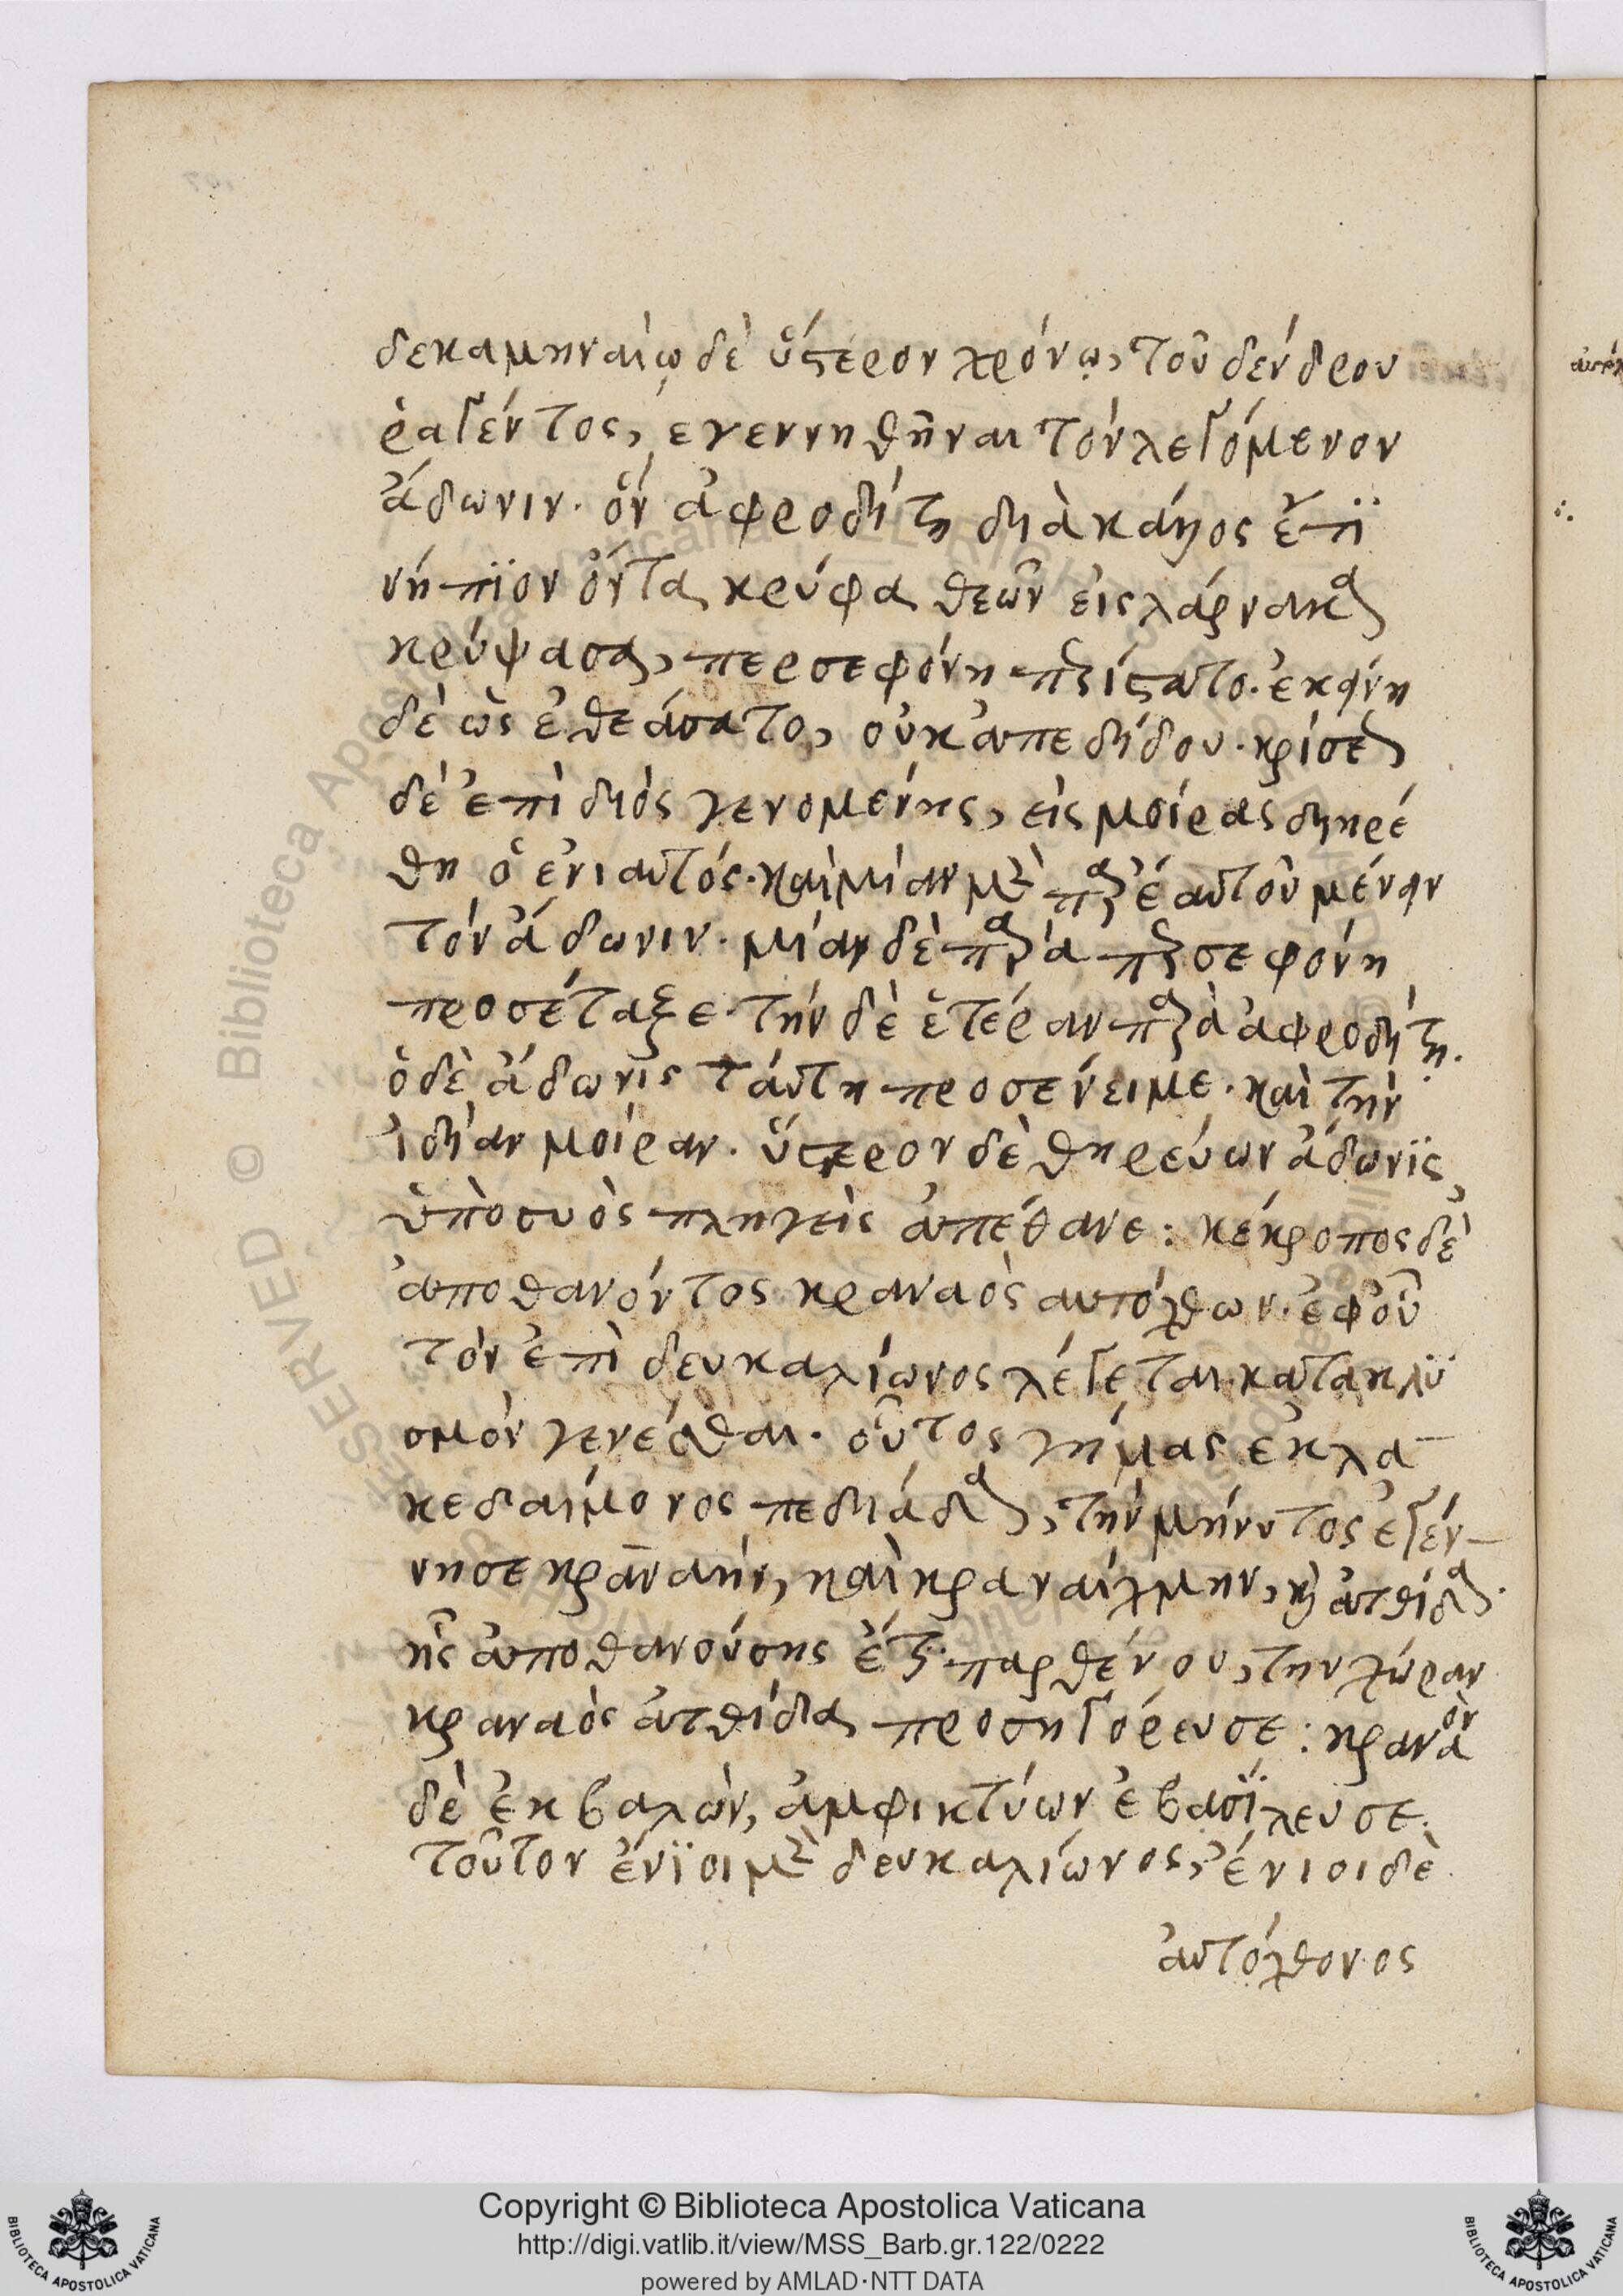 δεκαμηναίῳ δὲ ὕστερον χρόνῳ, τοῦ δένδρου
ῥαγέντος, ἐγεννηθῆναι τὸν λεγόμενον
ἄδωνιν. ὃν ἀφροδίτη διὰ κάλλος ἔτι
νήπϊον ὄντα κρύφα θεῶν εἰς λάρνακα
κρύψασα, περσεφόνη παρίστατο. ἐκείνη
δὲ ὡς ἐθεάσατο, οὐκ ἀπεδίδου. κρίσεως
δὲ ἐπὶ διὸς γενομένης, εἰς μοίρας διῃρέ
θη ὁ ἐνιαυτός. καὶ μίαν μὲν παρ' ἑαυτοῦ μένειν
τὸν ἄδωνιν. μίαν δὲ παρὰ περσεφόνη
προσέταξε. τὴν δὲ ἑτέραν παρὰ ἀφροδίτῃ.
ὁ δὲ ἄδωνις ταύτη προσένειμε. καὶ τὴν
ἰδίαν μοίραν. ὕστερον δὲ θηρεύων ἄδωνϊς,
ὑπὸ συὸς πληγεὶς ἀπέθανε: κέκροπος δὲ
ἀποθανόντος κραναὸς αυτόχθων. ἐφ' οὗ
τὸν ἐπὶ δευκαλίωνος λέγεται κατακλϋ
σμὸν γενέσθαι. οὗτος γήμας ἐκ λα
κεδαίμονος πεδιάδα, τὴν μήνυτος ἐγέν
νησε κραναὴν, καὶ κραναίχμην, καὶ ἀτθίδα.
ἧς ἀποθανούσης ἔτι παρθένου, την χώραν
κραναὸς ἀτθίδα προσηγόρευσε: κραναὸν
δὲ ἐκβαλὼν, ἀμφικτύων ἐβασΐλευσε.
τοῦτον ἔνϊοι μὲν δευκαλίωνος, ἔνιοι δὲ
αὐτόχθονος
Copyright © Biblioteca Apostolica Vaticana
http://digi.vatlib.it/view/MSS_Barb.gr.122/0222
powered by AMLAD·NTT DATA
BIBLIOTECA APOSTOLICA VATICANA
BIBLIOTECA APOSTOLICA VATICANA